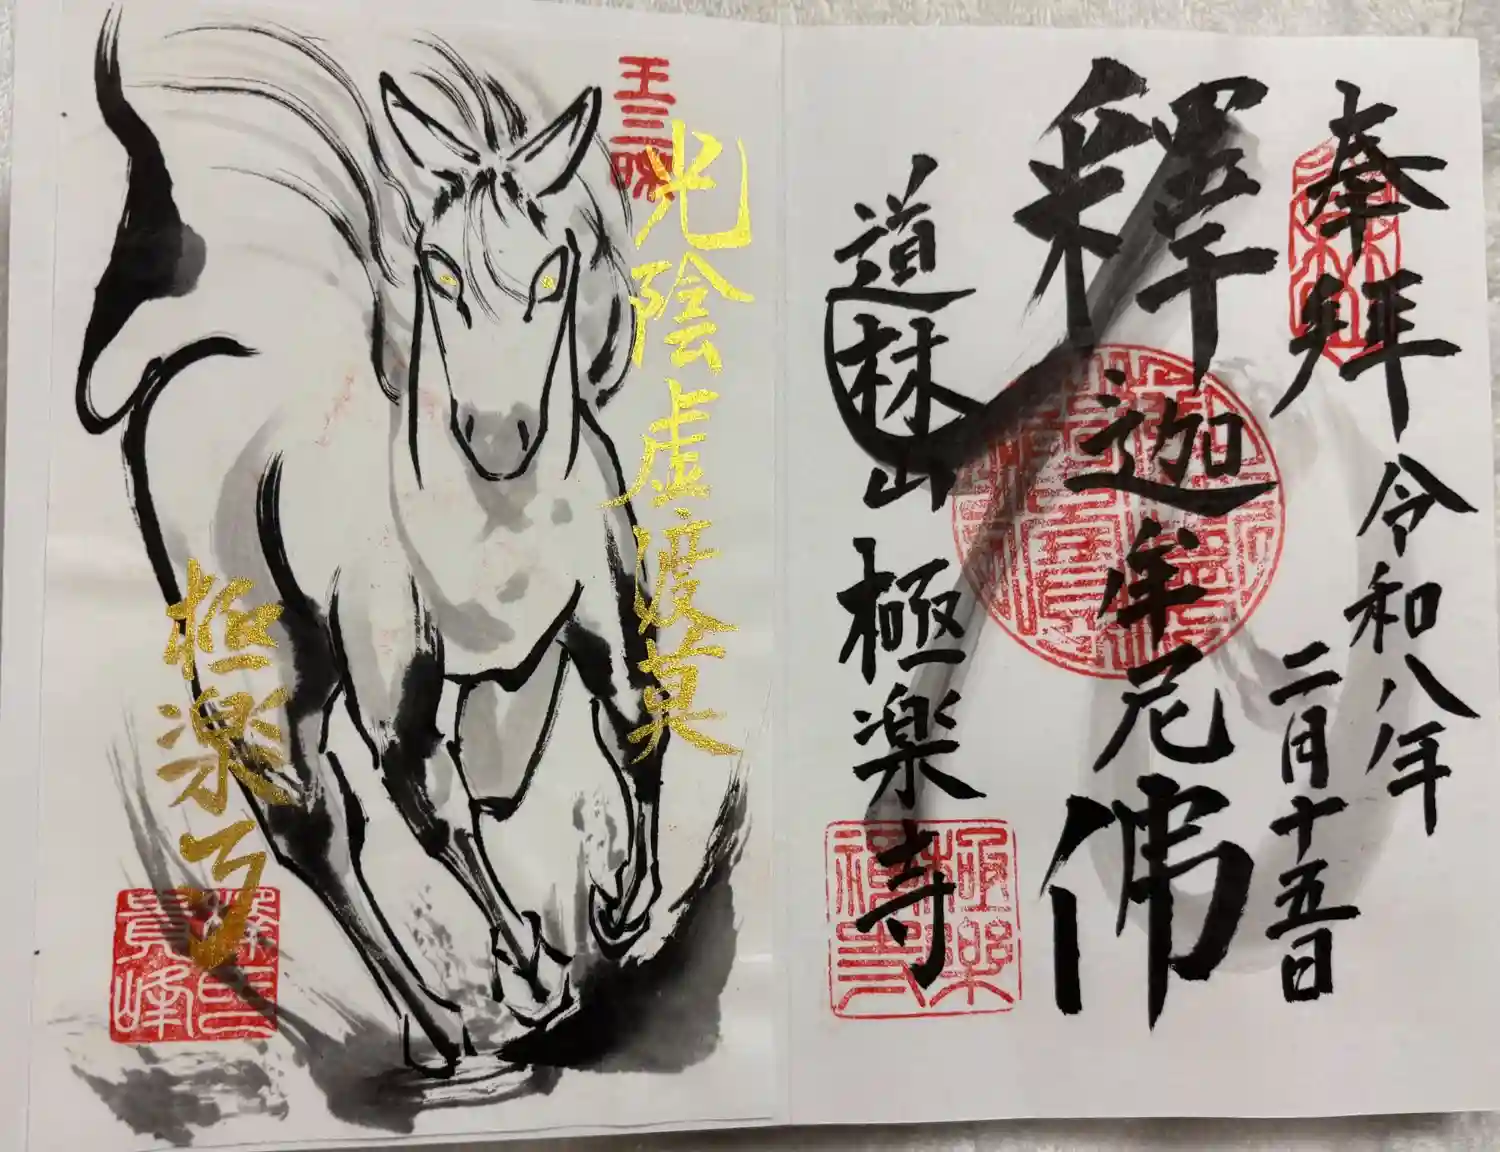 奉拝
令和八年
二月十五日
釋迦牟尼佛
道林山 極楽寺
極樂禅寺
光陰虚渡莫
極楽